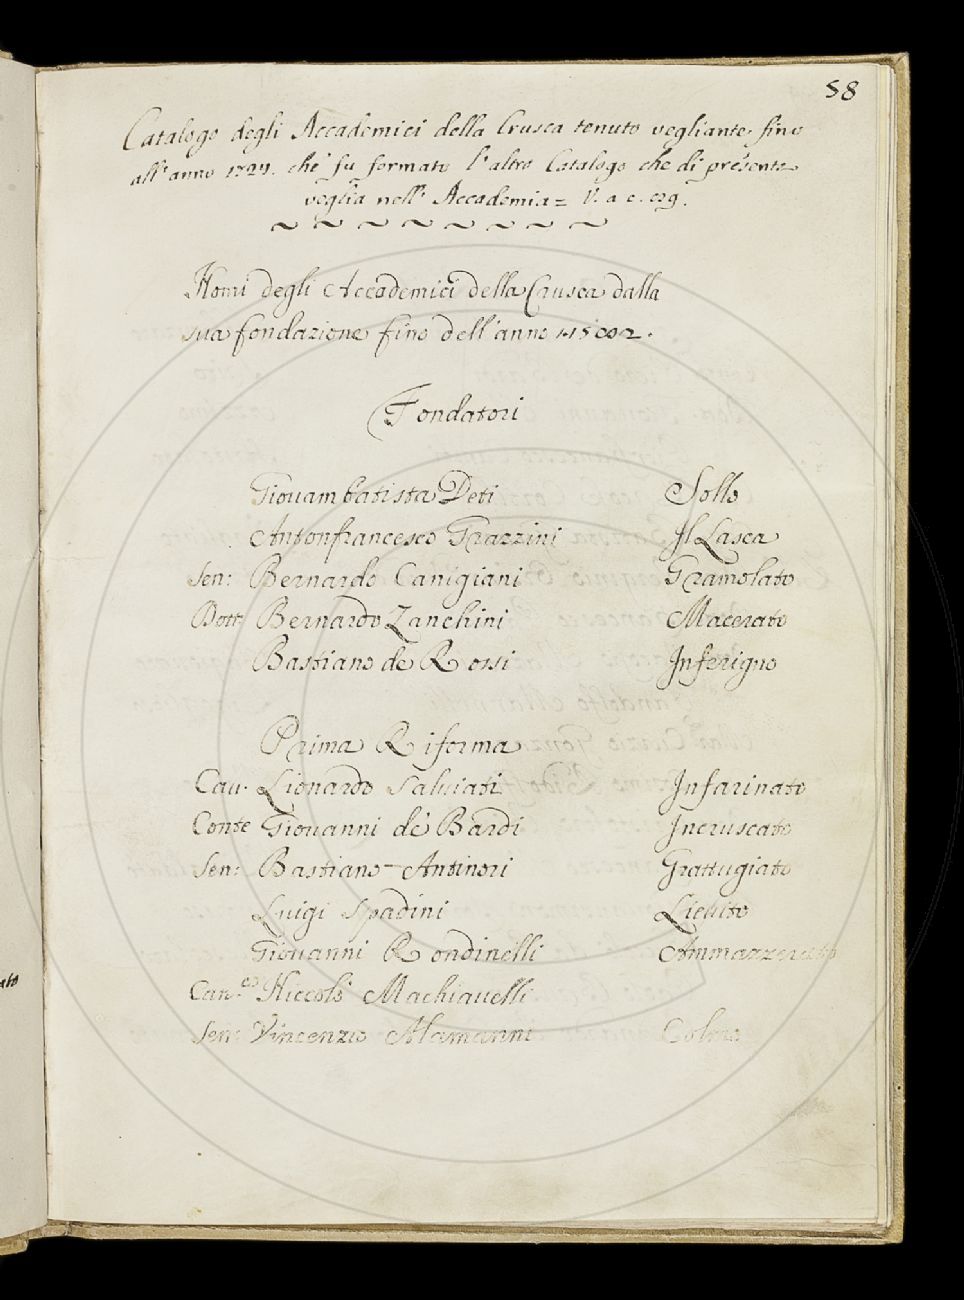 58
Catalogo degli Accademici della Crusca tenuto vegliante fino
all'anno 1727. che fu formato l'altro Catalogo che di presente
veglia nell' Accademia =
Nomi degli Accademici della Crusca dalla
sua fondazione fino dell'anno
Fondatori
Giouambatista Deti Sollo
Antonfrancesco Grazzini Il Lasca
Sen: Bernardo Canigiani Gramolato
Dott: Bernardo Zanchini Macerato
Bastiano de Rossi Inferigno
Prima Riforma
Cau. Lionardo Saluiati Infarinato
Conte Giouanni de' Bardi Incruscato
Sen: Bastiano Antinori Grattugiato
Luigi Spadini Lieuito
Giouanni Rondinelli Ammazzerato
Can.co Niccolò Machiauelli
Sen: Vincenzio Alamanni